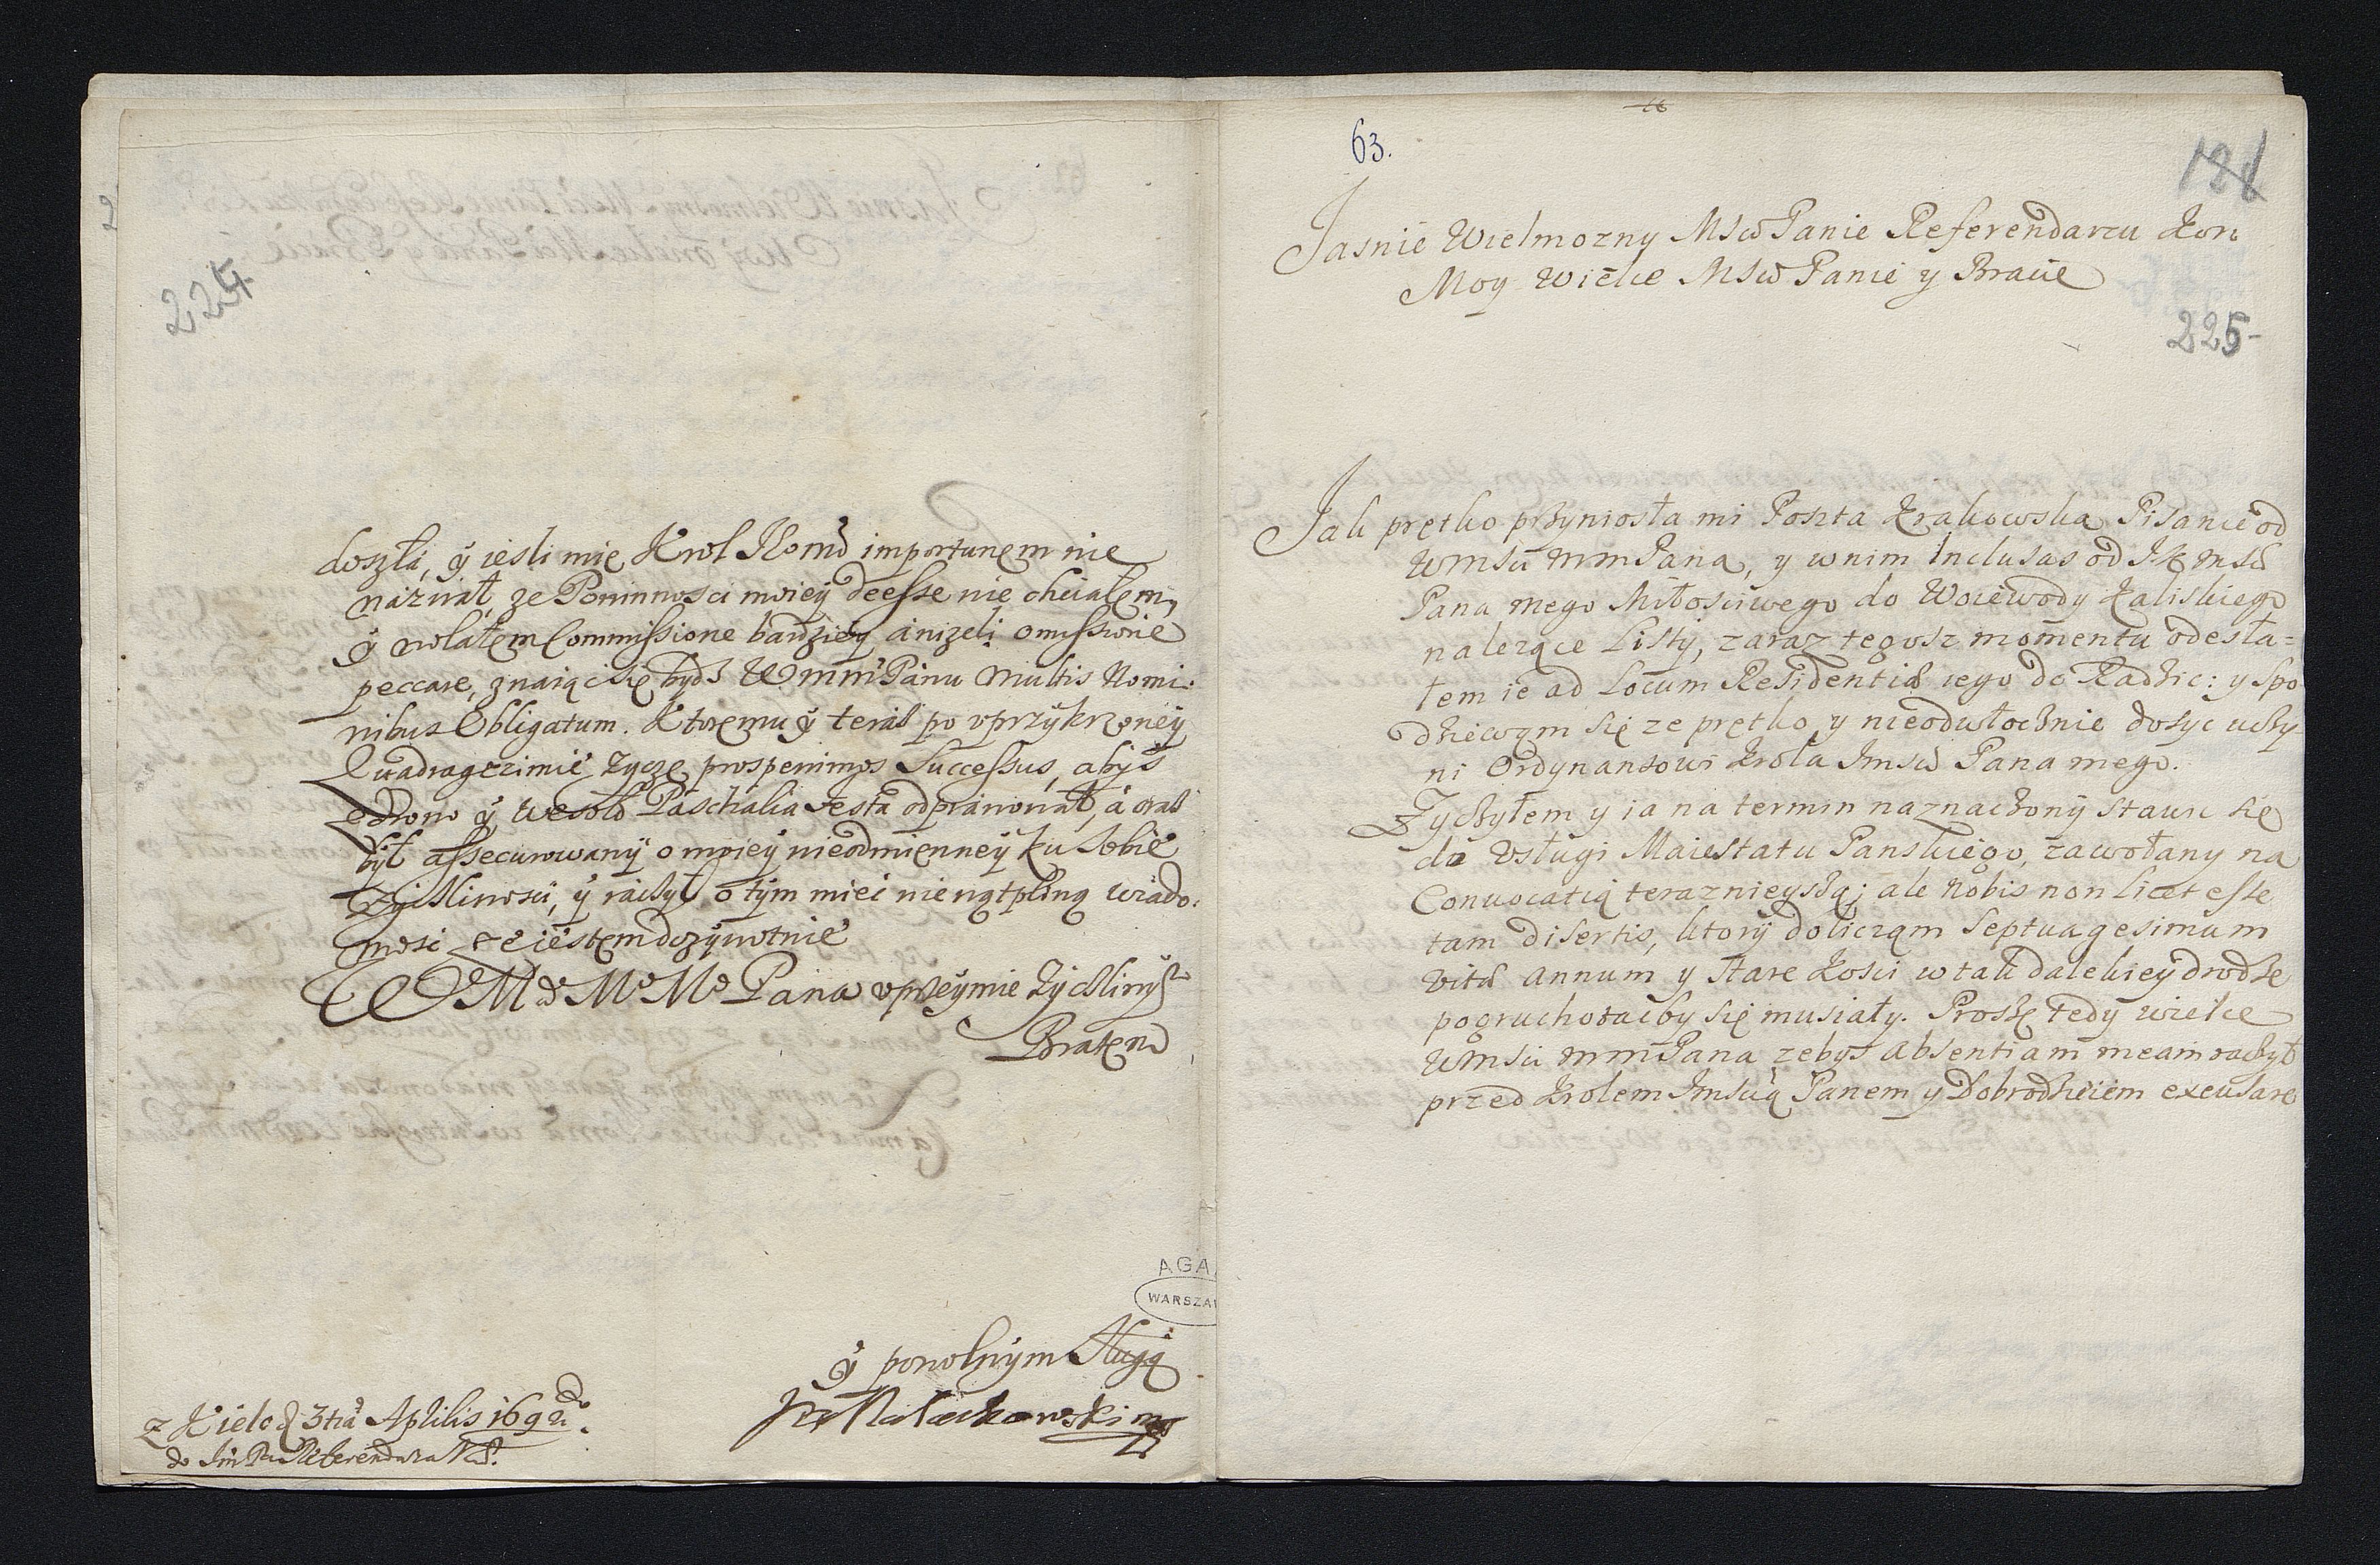 224
doszła, ÿ iesli mię Krol Jeomć importunem nie
náznał, ze Powinnosci moieÿ deesse nie chciałem,
ÿ wolałem Commissione bardzieÿ ániżeli omissione
peccare, znaiąc się bydź WMM Pánu multis Nomi-
nibus Obligatum. Ktoremu ÿ teráś po vprzÿkrzoneÿ
Quadragezimie życzę prosperrimos Successus, abÿś
zdrowo ÿ wesoło Páschalia Festa odpráwował, á oráś
bÿł assecurowanÿ o moieÿ nieodmienneÿ ku sobie
życzliwosci, ÿ raczÿł o tÿm mieć niewątpliwą wiado-
mosć że iestem dozÿwotnie
WMM Mo Mo Pana vprzeÿmie zÿczliwÿm
Bratem
ÿ powolnÿm sługą
Małachowski
z Kielc 3tia Aplilis 1692do
do Jm Pa Referendarza
AGA
WARSZAW
63.
181
Jasnie Wielmozny MSCW Panie Referendarzu Kor
Moy Wielce MSCW Panie y Bracie
225
Jak prętko przyniosła mi Poszta Krakowska Pisanie od
WMSci mm Pana, y w nim Inclusas od JK msći
Pana mego Miłosciwego do Woiewody Kaliskiego
nalezące Listÿ, zaraz tegosz momentu odesła-
łem ie ad Locum Residentiæ iego do Radzic: y spo
dziewąm się ze prętko y nieodwłocznie dosyć uczy
ni Ordynansowi Krola Jmsći Pana mego.
Zyczyłem y ia na termin naznaczonÿ stawić się
do Vsługi Maiestatu Panskiego, zawołany na
Conuocatią terazniejszą; ale Nobis non licet esse
tam disertis, ktorÿ dolicząm Septuagesimum
vitæ annum y stare kosci w tak dalekieÿ drodze
pogruchotać by się musiały. Proszę tedÿ wielce
WMSci mm Pana zebys absentiam meam raczył
przed Krolem Jmścią Panem y Dobrodzieiem excusare